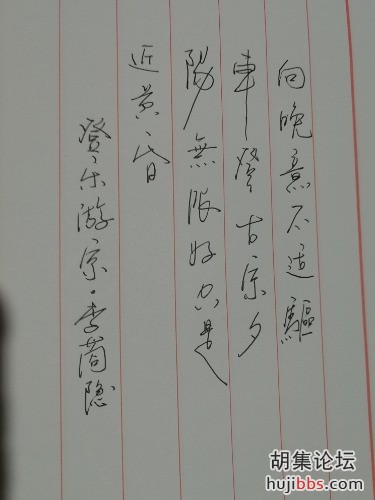 向晚意不适驅
車登古原夕
陽無限好只是
近黄昏
登乐游原·李商隐
胡集论坛
hujibbs.com